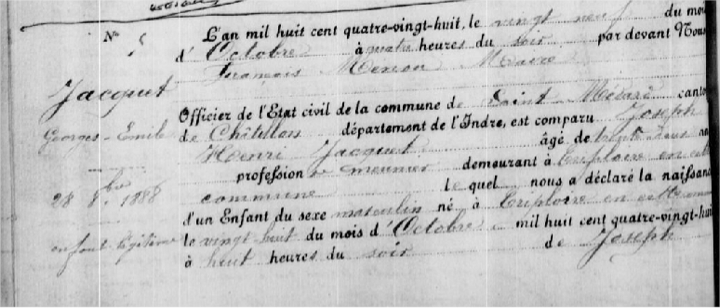 N° 5
Jacquet
Georges-Emile
28 8bre 1888
enfant légitime
L'an mil huit cent quatre-vingt-huit, le vingt neuf du mois
d'Octobre à quatre heures du soir par devant Nous
François Maire
Officier de l'Etat civil de la commune de Saint-Médard canton
de Châtillon département de l'Indre, est comparu Joseph
Henri Jacquet âgé de trente deux ans
profession de meunier demeurant à en cette
commune lequel nous a déclaré la naissance
d'un Enfant du sexe masculin né à en cette commune
le vingt huit du mois d'Octobre mil huit cent quatre-vingt-huit
à huit heures du soir de Joseph